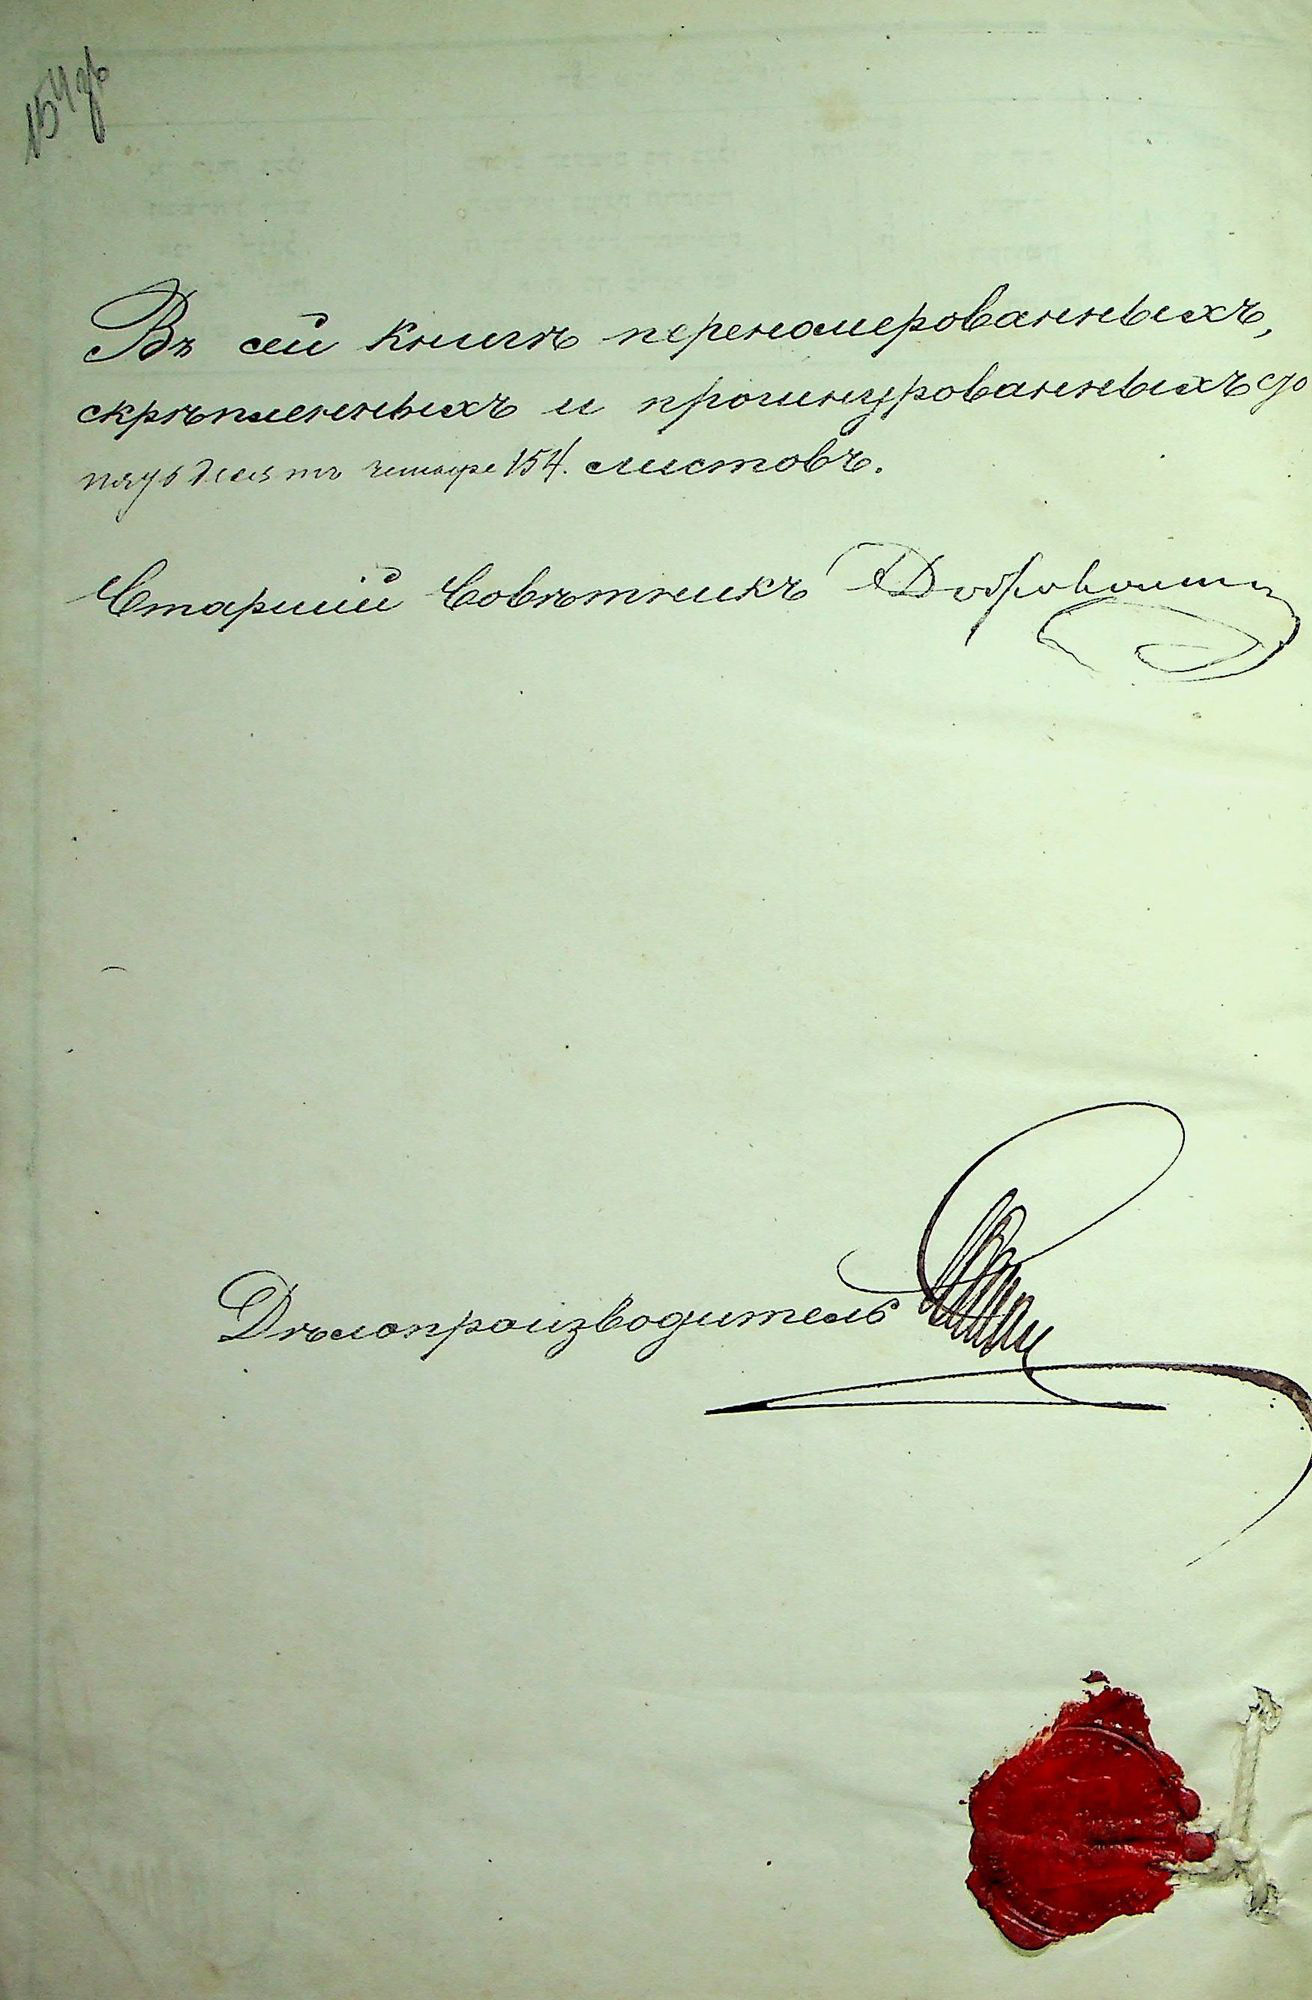 154 об
Въ сей книгѣ перенумерованныхъ,
скрѣпленныхъ и прошнурованныхъ сто
пятьдесятъ четыре 154. листовъ.
Старшій Совѣтникъ
Дѣлопроизводитель